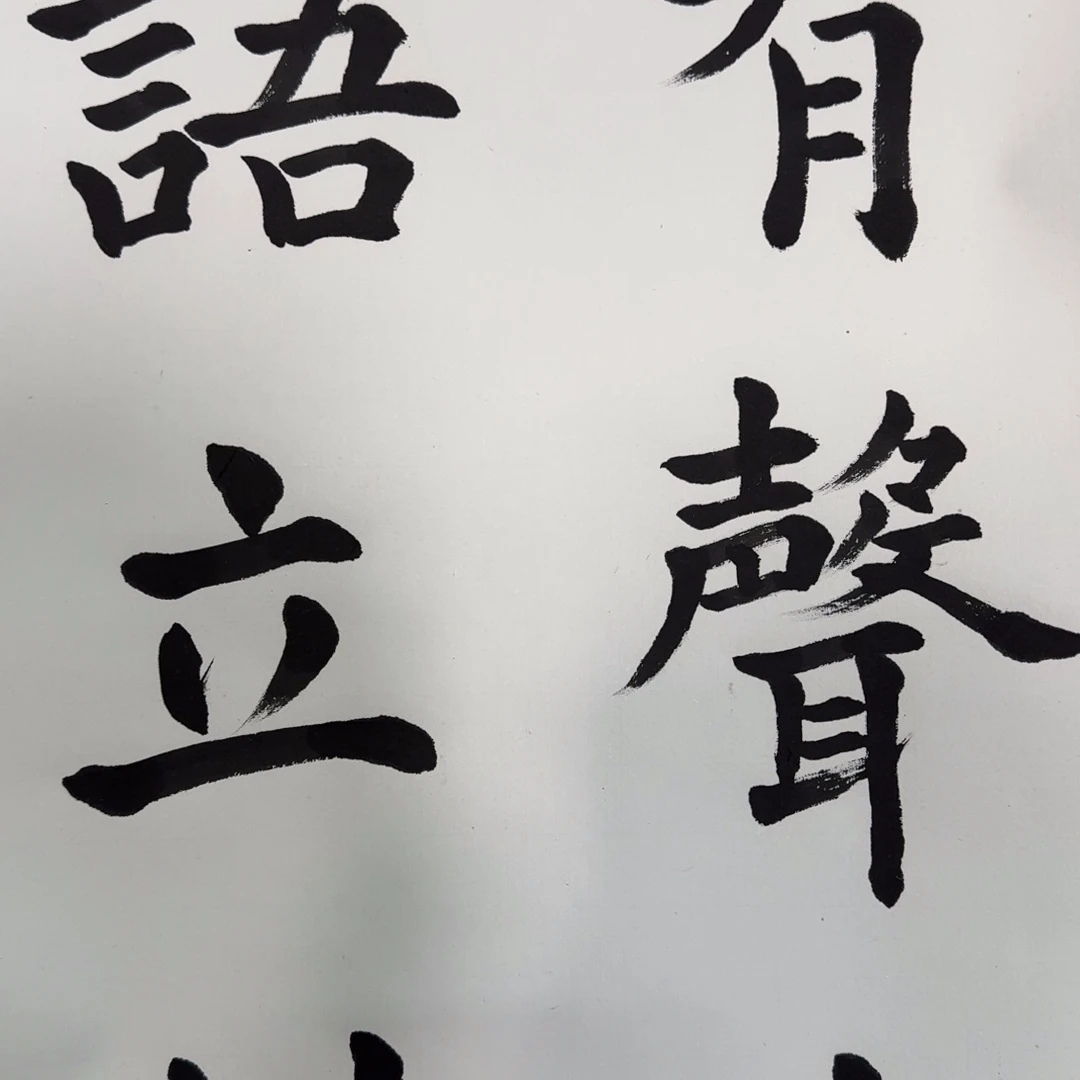 有聲
語立